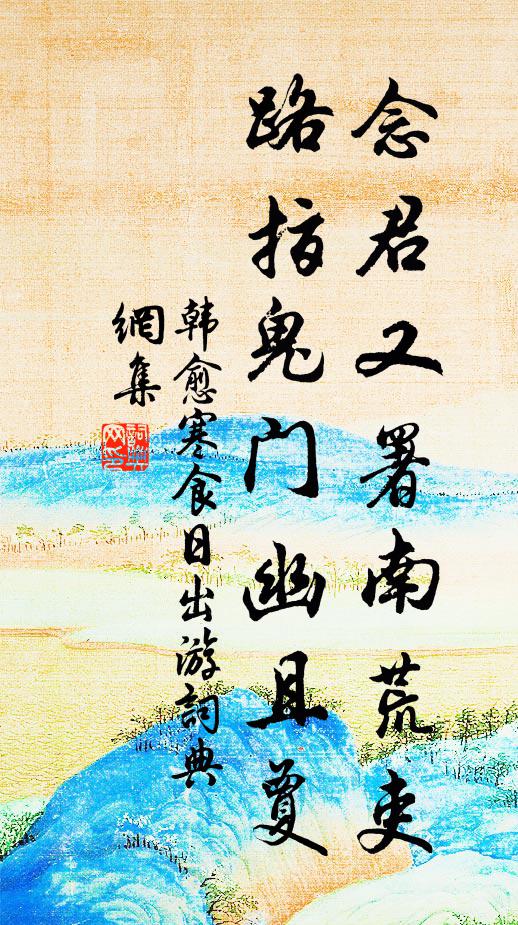 念君又署南荒吏
路指鬼门幽且夐
韩愈寒食日出游词典
網集